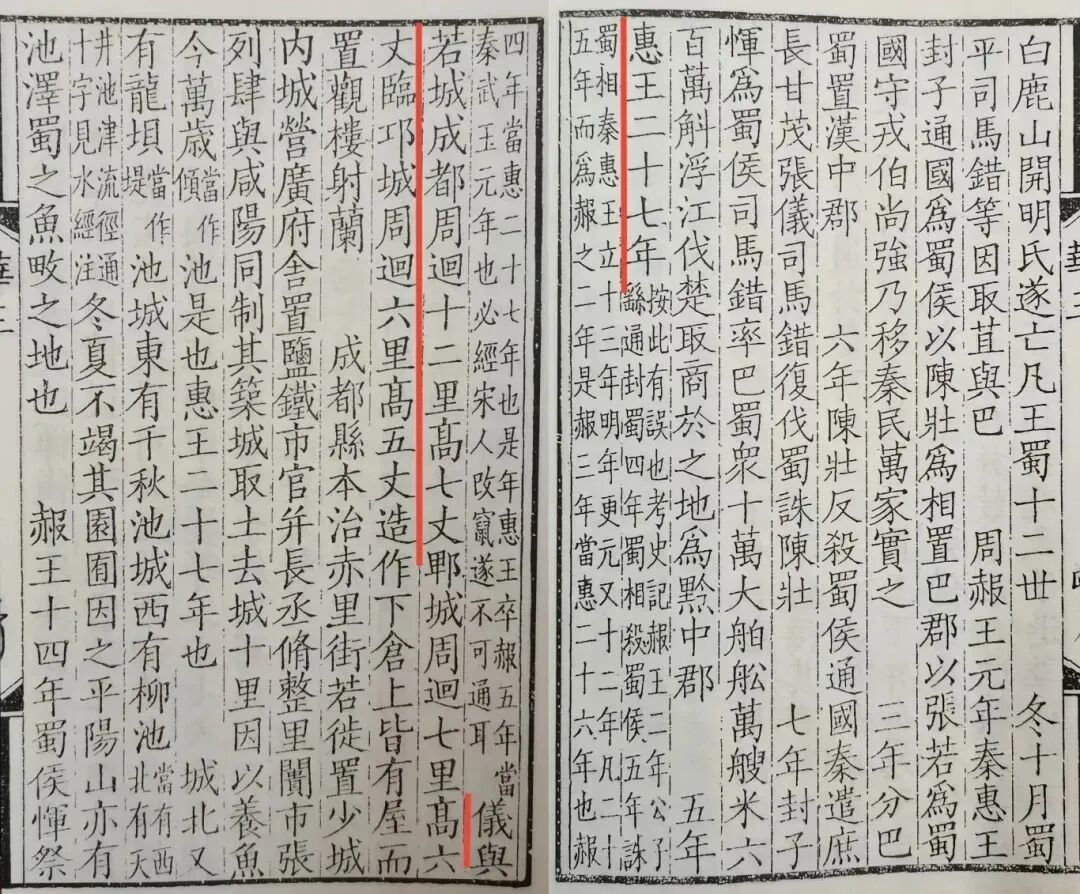 白鹿山開明氏遂亡凡王蜀十二世　冬十月蜀
平司馬錯等因取苴與巴　周赧王元年秦惠王
封子通國爲蜀侯以陳壯爲相置巴郡以張若爲蜀
國守戎伯尚強乃移秦民萬家實之　三年分巴
蜀置漢中郡　六年陳壯反殺蜀侯通國秦遣庶
長甘茂張儀司馬錯復伐蜀誅陳壯　七年封子
惲爲蜀侯司馬錯率巴蜀衆十萬大舶舩萬艘米六
百萬斛浮江伐楚取商於之地爲黔中郡　五年
惠王二十七年按此有誤也考史記赧王二年公子繇通封蜀四年蜀相殺蜀侯五年誅
蜀相秦惠王立十三年明年更元又十二年凡二十五年而爲赧之二年是赧三年當惠二十六年也赧
四年當惠二十七年也是年惠王卒赧五年當秦武王元年也必經宋人改竄遂不可通耳儀與
若城成都周迴十二里高七丈郫城周迴七里高六
丈臨邛城周迴六里高五丈造作下倉上皆有屋而
置觀樓射蘭　成都縣本治赤里街若徙置少城
内城營廣府舍置鹽鐵市官并長丞脩整里闠市張
列肆與咸陽同制其築城取土去城十里因以養魚
今萬歲傾當作池是也惠王二十七年也　城北又
有龍垻當作堤池城東有千秋池城西有柳池當有西北有天
井池津流徑通十字見水經注冬夏不竭其園囿因之平陽山亦有
池澤蜀之魚畋之地也　赧王十四年蜀侯惲祭